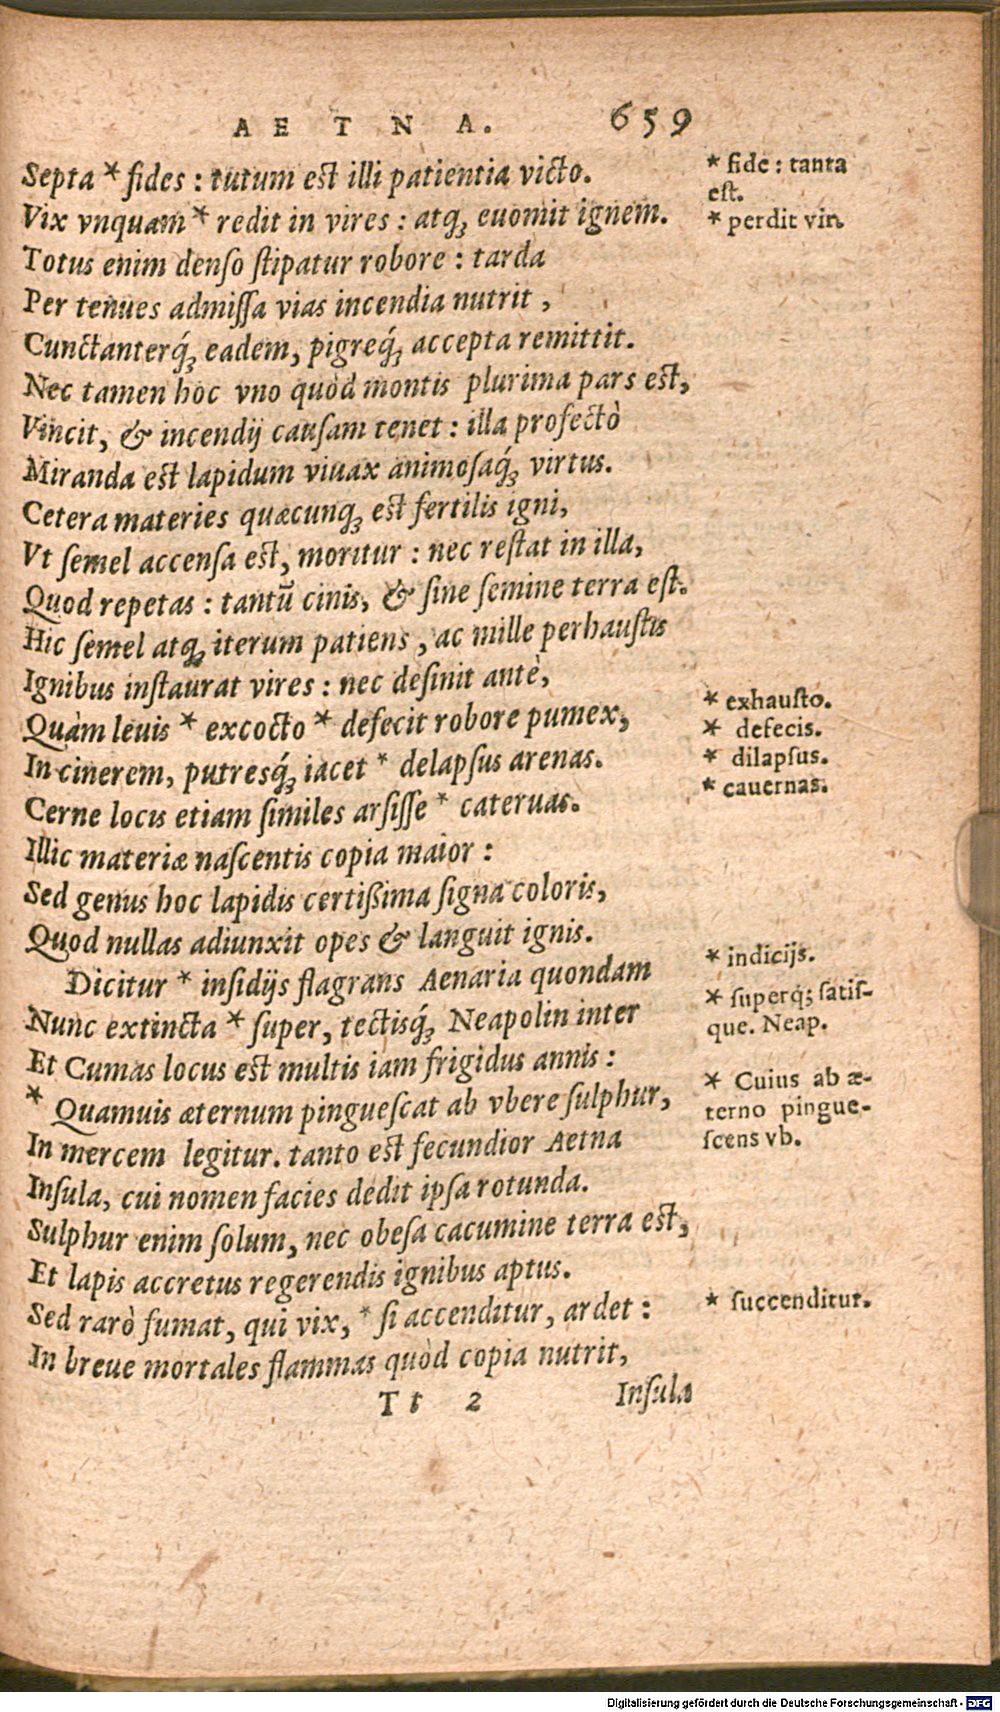 AETNA. 659
Septa * fides : tutum est illi patientia victo.
* fide : tanta
est.
Vix vnquam * redit in vires : atq; euomit ignem.
* perdit vir.
Totus enim denso stipatur robore : tarda
Per tenues admissa vias incendia nutrit ,
Cunctanterq́; eadem, pigreq́; accepta remittit.
Nec tamen hoc vno quòd montis plurima pars est,
Vincit, & incendij causam tenet : illa profectò
Miranda est lapidum viuax animosaq́; virtus.
Cetera materies quæcunq; est fertilis igni,
Vt semel accensa est, moritur : nec restat in illa,
Quod repetas : tantũ cinis, & sine semine terra est.
Hic semel atq; iterum patiens , ac mille perhaustis
Ignibus instaurat vires : nec desinit antè,
Quàm leuis * excocto * defecit robore pumex,
* exhausto.
* defecis.
In cinerem, putresq́; iacet * delapsus arenas.
* dilapsus.
Cerne locis etiam similes arsisse * cateruas.
* cauernas.
Illic materiæ nascentis copia maior :
Sed genus hoc lapidis certißima signa coloris,
Quod nullas adiunxit opes & languit ignis.
Dicitur * insidijs flagrans Aenaria quondam
* indicijs.
Nunc extincta * super, tectisq́; Neapolin inter
* superq́; satis-
que. Neap.
Et Cumas locus est multis iam frigidus annis :
* Quamuis æternum pinguescat ab vbere sulphur,
* Cuius ab æ-
terno pingue-
scens vb.
In mercem legitur. tanto est fecundior Aetna
Insula, cui nomen facies dedit ipsa rotunda.
Sulphur enim solum, nec obesa cacumine terra est,
Et lapis accretus regerendis ignibus aptus.
Sed rarò fumat, qui vix, * si accenditur, ardet :
* succenditur.
In breue mortales flammas quòd copia nutrit,
Tt 2 Insula
Digitalisierung gefördert durch die Deutsche Forschungsgemeinschaft - DFG